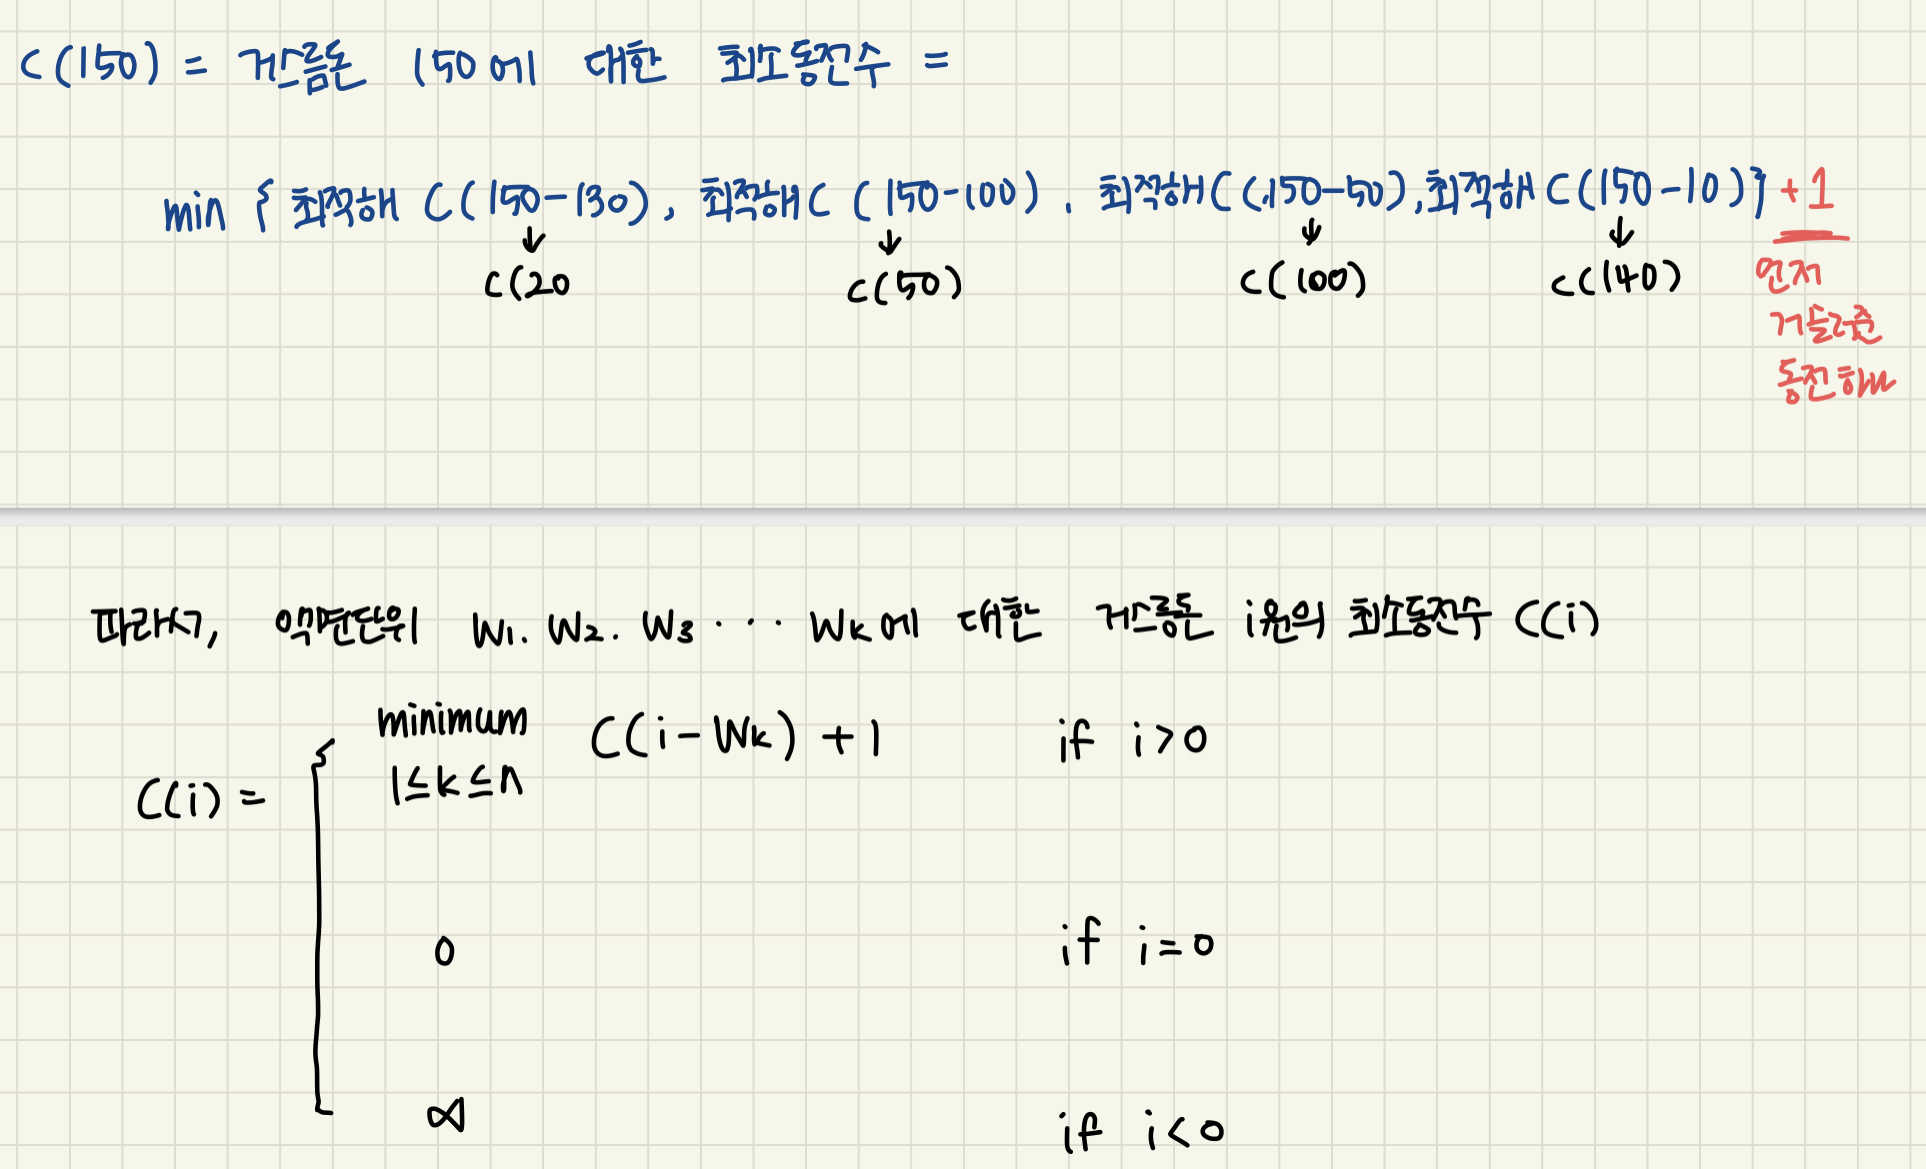 C(150) = 거스름돈 150에 대한 최소동전수 =
min { 최적해 C(150-130), 최적해 C(150-100), 최적해 C(150-50), 최적해 C(150-10)} +1
↓ ↓ ↓ ↓
C(20 C(50) C(100) C(140)
먼저
거슬러준
동전하나
따라서, 액면단위 W1. W2. W3 ···· Wk에 대한 거스름돈 i원의 최소동전수 C(i)
minimum C(i-Wk) +1 if i>0
C(i) = { 1≤k≤n
0 if i=0
∞ if i<0